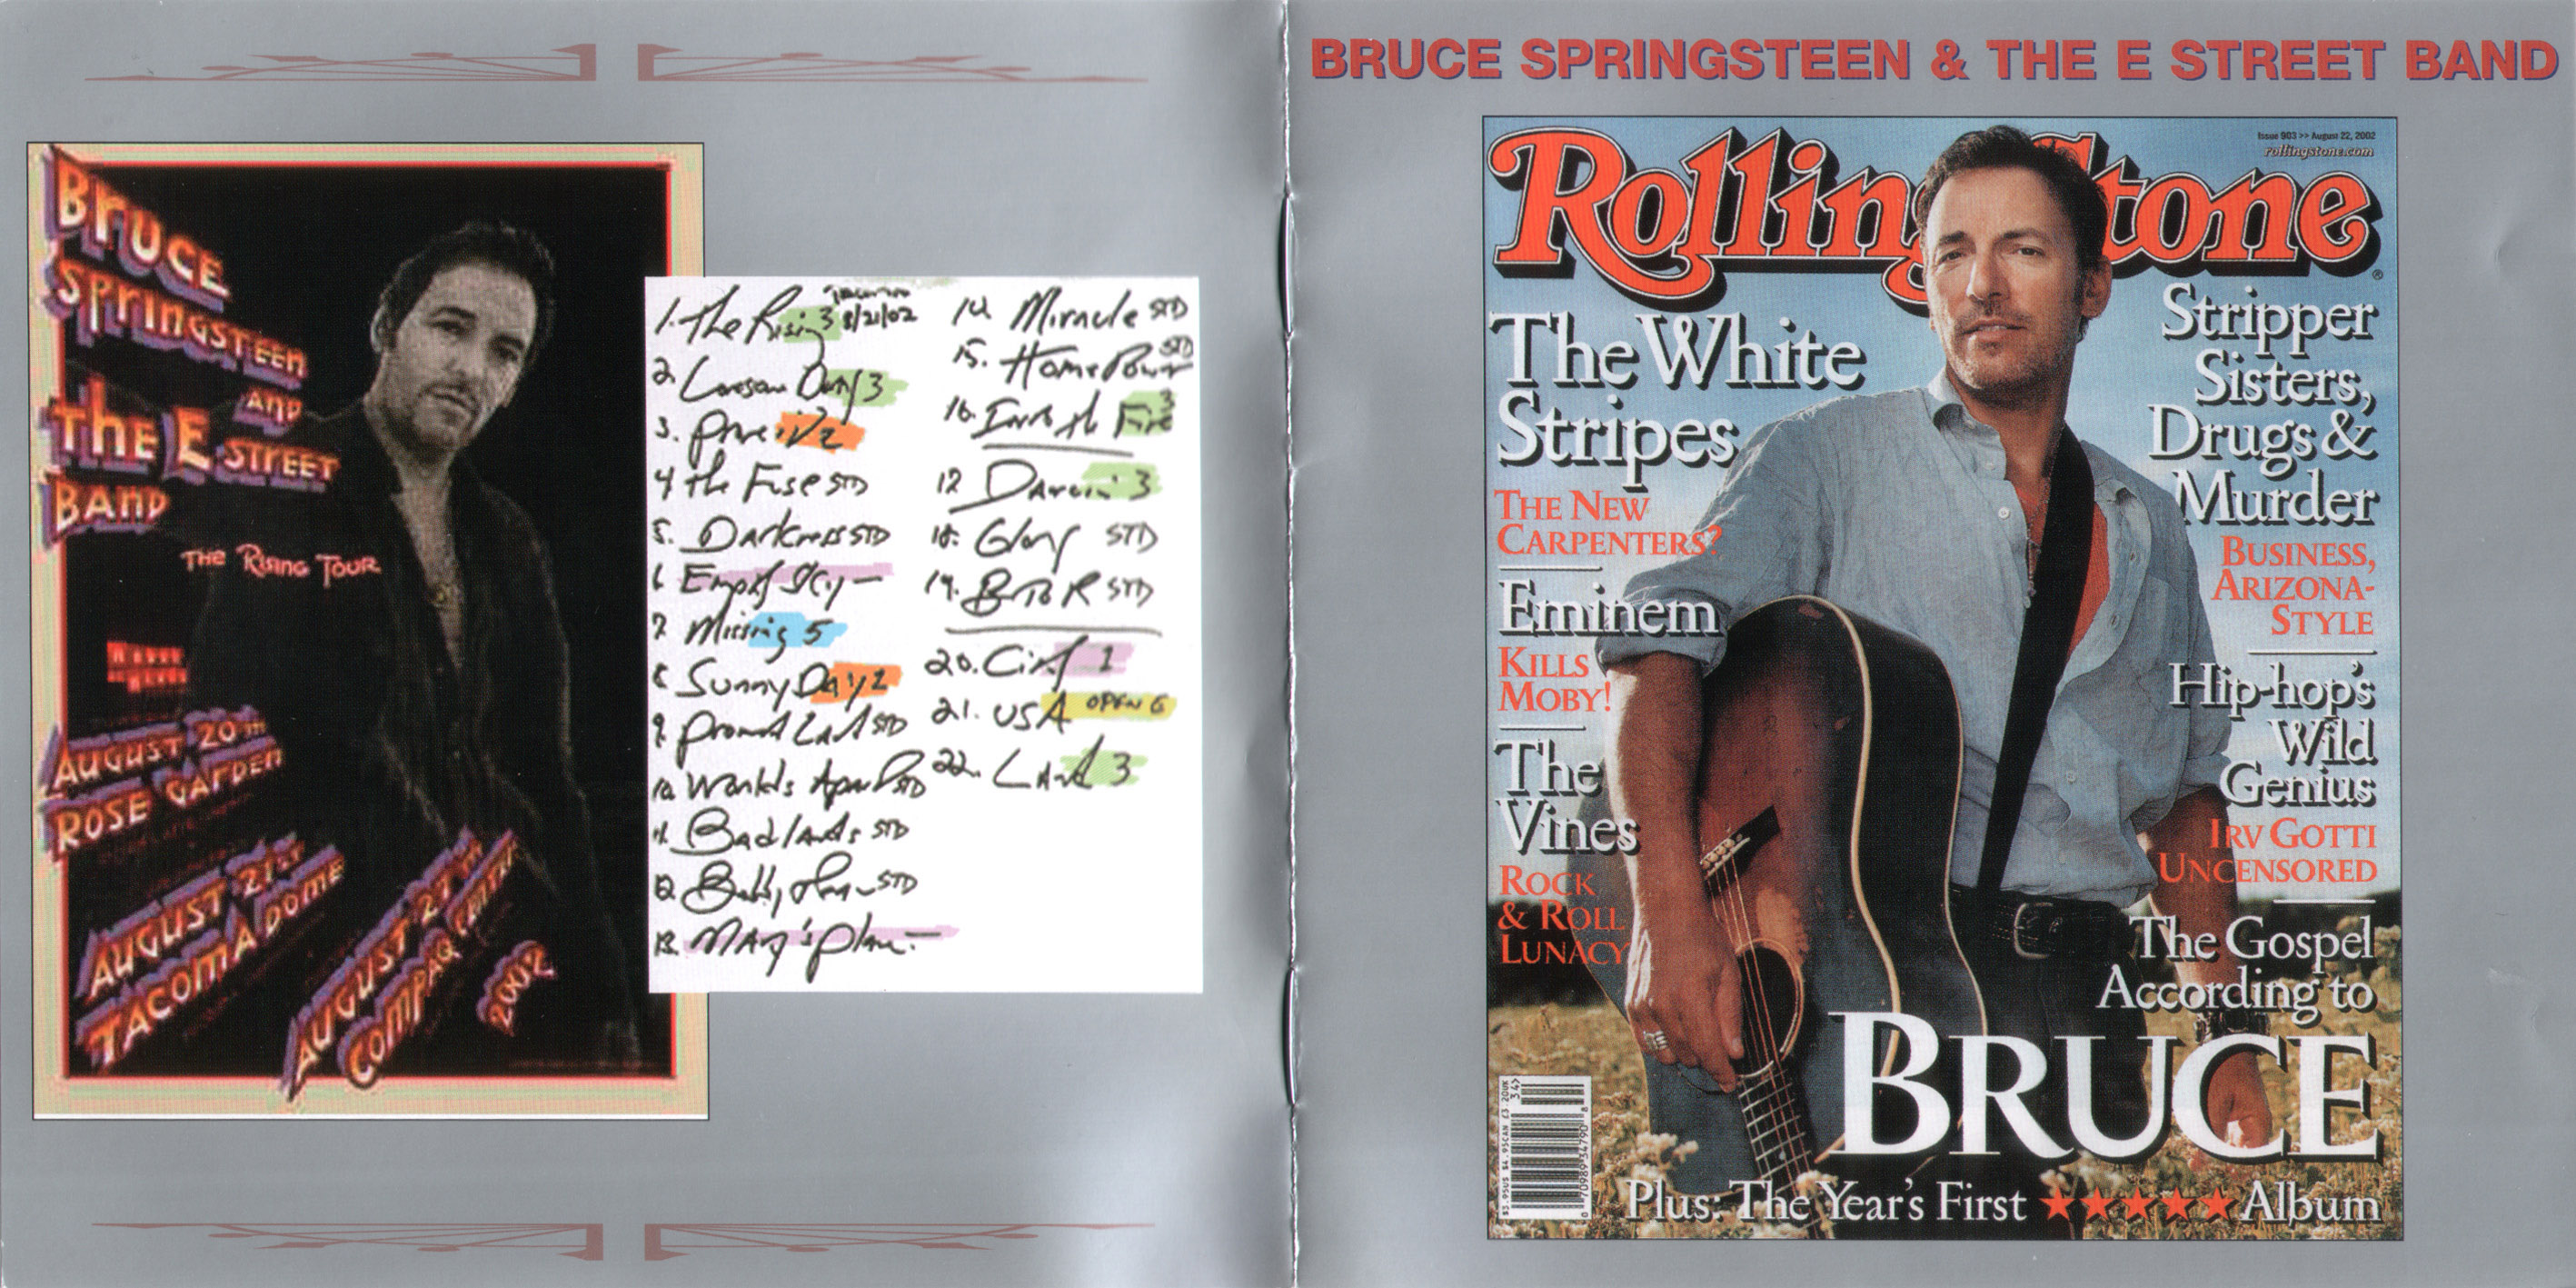 BRUCE
SPRINGSTEEN
AND
THE E STREET
BAND
THE RISING TOUR
AUGUST 20TH
ROSE GARDEN
AUGUST 21ST
TACOMA DOME
AUGUST 27TH
COMPAQ CENTER
2002
1. The Rising 3 8/21/02
2. Day 3
3. 2
4 the Fuse STD
5. Darkness STD
6 Empty Sky
7 Missing 5
8 Sunny Day 2
9. Promised Land STD
10. Worlds Apart STD
11. Badlands STD
12. Bobby Jean STD
13. Mary's Place
14. Miracle STD
15. Hometown STD
16. Into the Fire 3
17 Dancin 3
18. Glory STD
19. BTOR STD
20. City 1
21. USA OPEN G
22. Land 3
BRUCE SPRINGSTEEN & THE E STREET BAND
Issue 903 >> August 22, 2002
rollingstone.com
Rolling Stone
The White
Stripes
THE NEW
CARPENTERS?
Eminem
KILLS
MOBY!
The
Vines
ROCK
& ROLL
LUNACY
Stripper
Sisters,
Drugs &
Murder
BUSINESS,
ARIZONA-
STYLE
Hip-hop's
Wild
Genius
IRV GOTTI
UNCENSORED
The Gospel
According to
BRUCE
Plus: The Year's First ★★★★★ Album
$3.95US $4.95CAN £3.20UK
34>
0 70989 34790 8